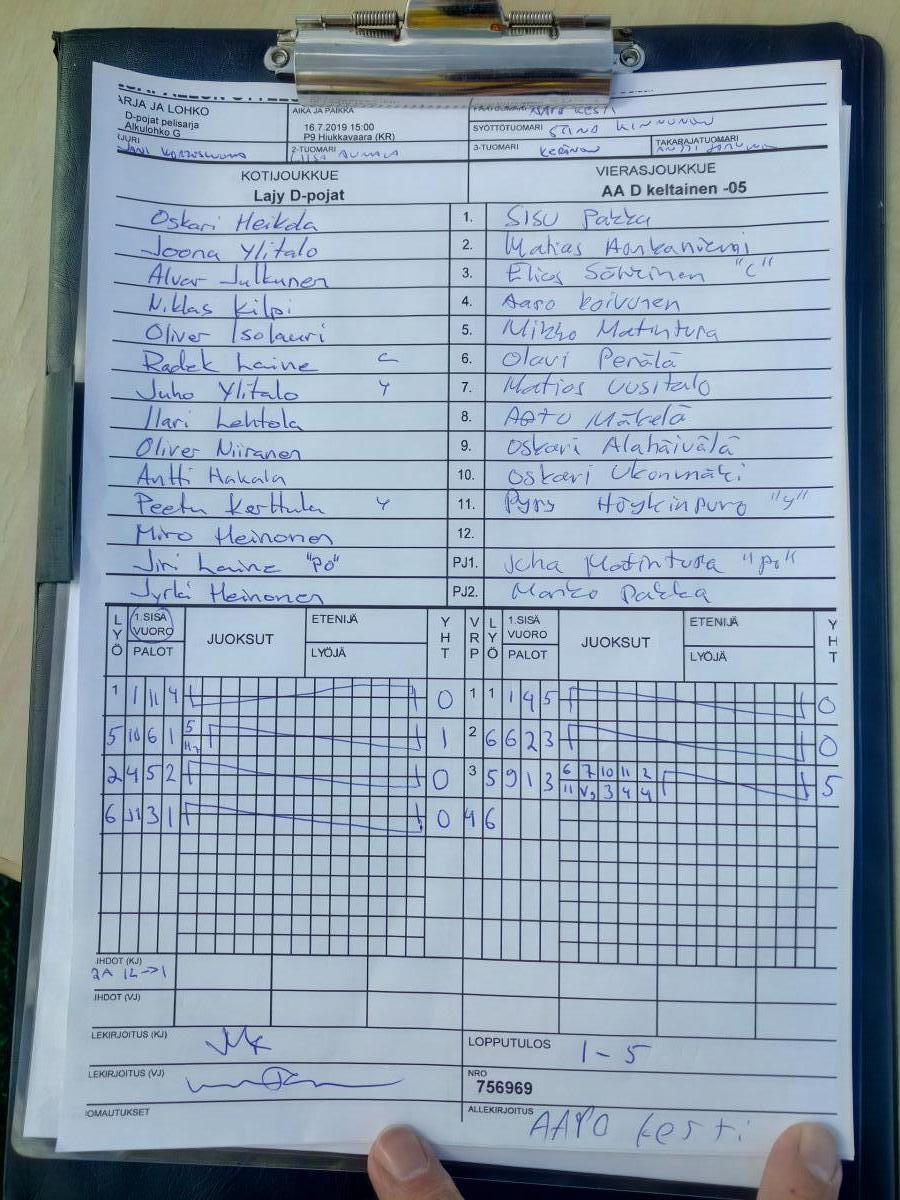 ARJA JA LOHKO
D-pojat pelisarja
Alkulohko G
AIKA JA PAIKKA
16.7.2019 15:00
P9 Hiukkavaara (KR)
SYÖTTÖTUOMARI STINA KINNUNEN
2-TUOMARI
3-TUOMARI
TAKARAJATUOMARI
KOTIJOUKKUE VIERASJOUKKUE
Lajy D-pojat AA D keltainen -05
Oskari Heikola 1. Sisu Pakka
Joona Ylitalo 2. Matias Honkaniemi
Alvar Julkunen 3. Elias "C"
Niklas Kilpi 4. Aaro Koivunen
Oliver Isolauri 5. Mikko Matintura
Radek Laine C 6. Olavi Perälä
Juho Ylitalo Y 7. Matias Uusitalo
Ilari Lehtola 8. Aatu Mäkelä
Oliver Niiranen 9. Oskari Alahäivälä
Antti Hakala 10. Oskari Ukonmäki
Peetu Karttula Y 11. Pyry Höykinpuro "y"
Miro Heinonen 12.
Jiri Laine "PO" PJ1. Juha Matintura "po"
Jyrki Heinonen PJ2. Marko Pakka
LYÖ 1.SISÄ VUORO PALOT JUOKSUT ETENIJÄ LYÖJÄ YHT VRP LYÖ 1.SISÄ VUORO PALOT JUOKSUT ETENIJÄ LYÖJÄ YHT
1 1 11 4 0 1 1 1 4 5 0
5 10 6 1 5 1 2 6 6 2 3 0
2 4 5 2 0 3 5 9 1 3 6 7 10 11 2 5
11 V9 3 4 4
6 11 3 1 0 4 6
IHDOT (KJ)
2A 12->1
IHDOT (VJ)
LEKIRJOITUS (KJ)
LOPPUTULOS 1-5
LEKIRJOITUS (VJ)
NRO
756969
OMAUTUKSET
ALLEKIRJOITUS
AAPO Kesti